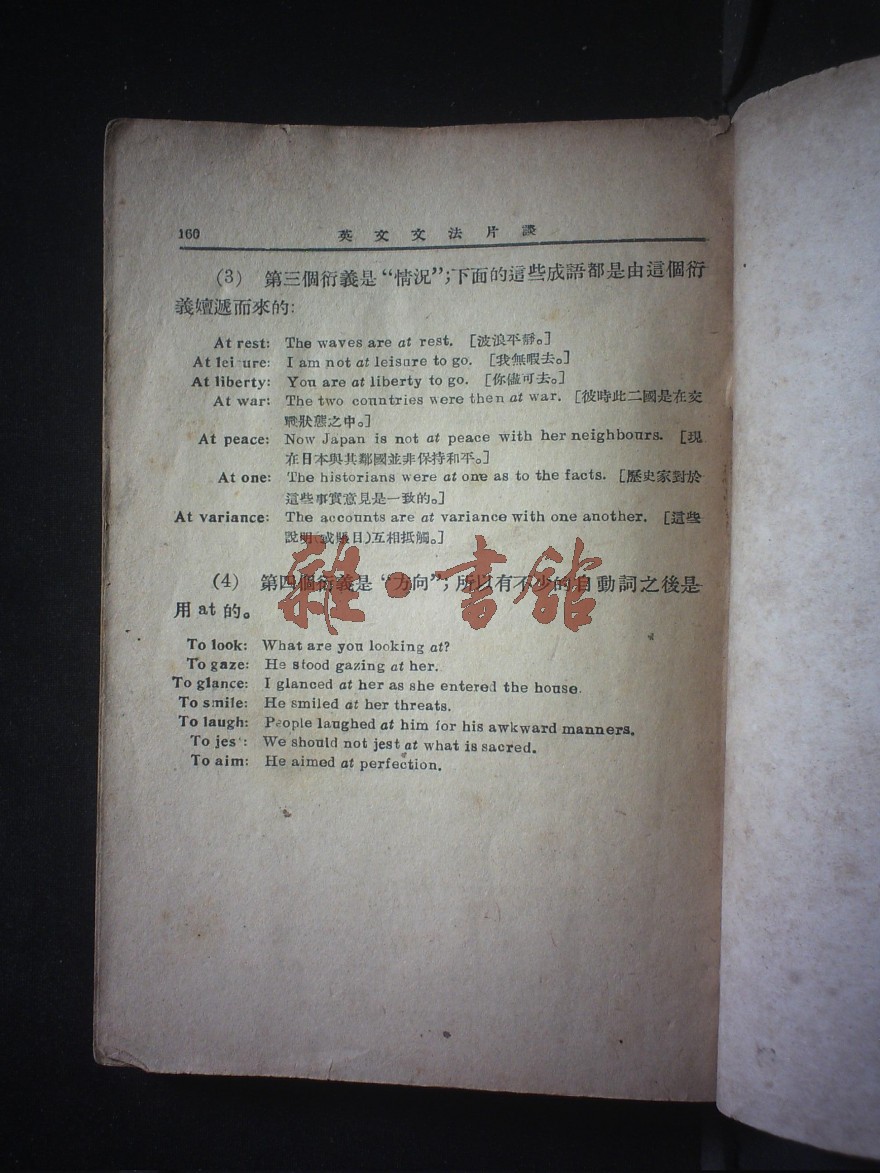 160 英文文法片談
(3) 第三個衍義是“情況”;下面的這些成語都是由這個衍
義嬗遞而來的:
At rest: The waves are at rest. [波浪平靜。]
At leisure: I am not at leisure to go. [我無暇去。]
At liberty: You are at liberty to go. [你儘可去。]
At war: The two countries were then at war. [彼時此二國是在交
戰狀態之中。]
At peace: Now Japan is not at peace with her neighbours. [現
在日本與其鄰國並非保持和平。]
At one: The historians were at one as to the facts. [歷史家對於
這些事實意見是一致的。]
At variance: The accounts are at variance with one another. [這些
說明(或賬目)互相抵觸。]
(4) 第四個衍義是“方向”;所以有不少的自動詞之後是
用 at 的。
雜·書館
To look: What are you looking at?
To gaze: He stood gazing at her.
To glance: I glanced at her as she entered the house.
To smile: He smiled at her threats.
To laugh: People laughed at him for his awkward manners.
To jest: We should not jest at what is sacred.
To aim: He aimed at perfection.